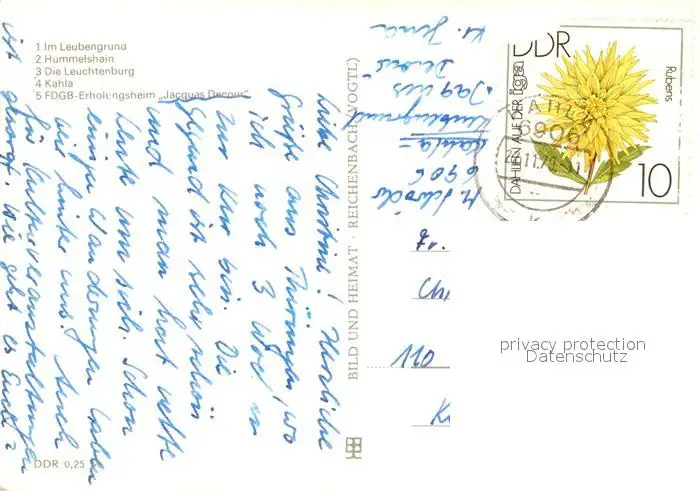 1 Im Leubengrund
2 Hummelshain
3 Die Leuchtenburg
4 Kahla
5 FDGB-Erholungsheim „Jacques Decour"
Liebe Christine! Herzliche
Grüße aus Thüringen, wo
ich noch 3 Woch. in
zur Kur bin. Die
Gegend ist sehr schön
und man hat nette
Leute um sich. Schon
einige Wanderungen haben
wir hinter uns. Auch
für Kulturveranstaltungen
ist gesorgt. Wie geht es Euch?
DDR 0,25
BILD UND HEIMAT · REICHENBACH (VOGTL)
6906
Kahla =
Leubengrund
"Jacques
Decour"
Kr. Jena
DDR
DAHLEN AUF DER
Rubens
10
6906
Fr.
110
privacy protection
Datenschutz